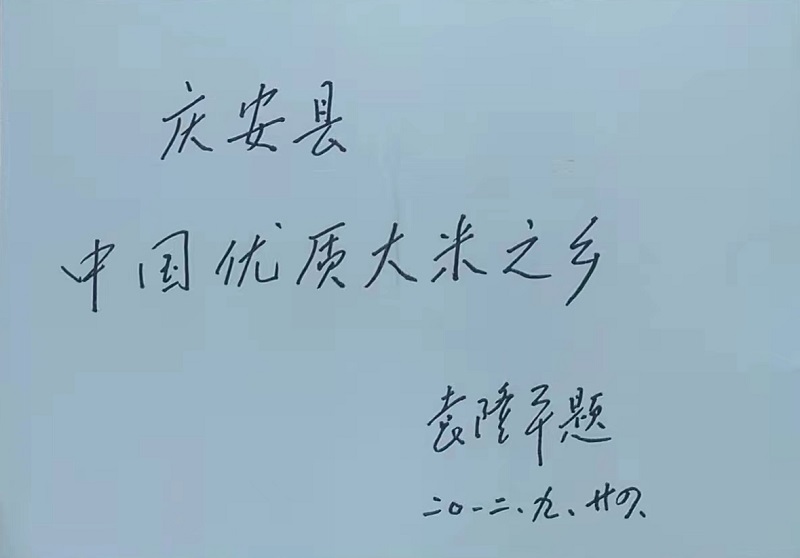 庆安县
中国优质大米之乡
袁隆平题
二〇一二、九、廿四、